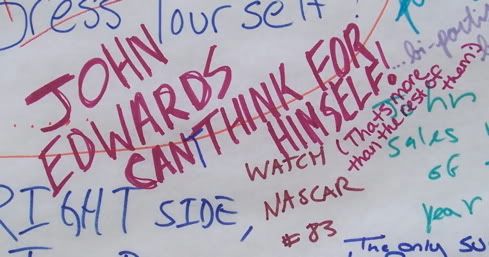 Dress Yourself!
...JOHN
EDWARDS
CAN'T THINK FOR
HIMSELF!
(That's more
than the rest of
them)
...bi-parti
WATCH
NASCAR
# 83
Sales
of
year
RIGHT SIDE,
The only su